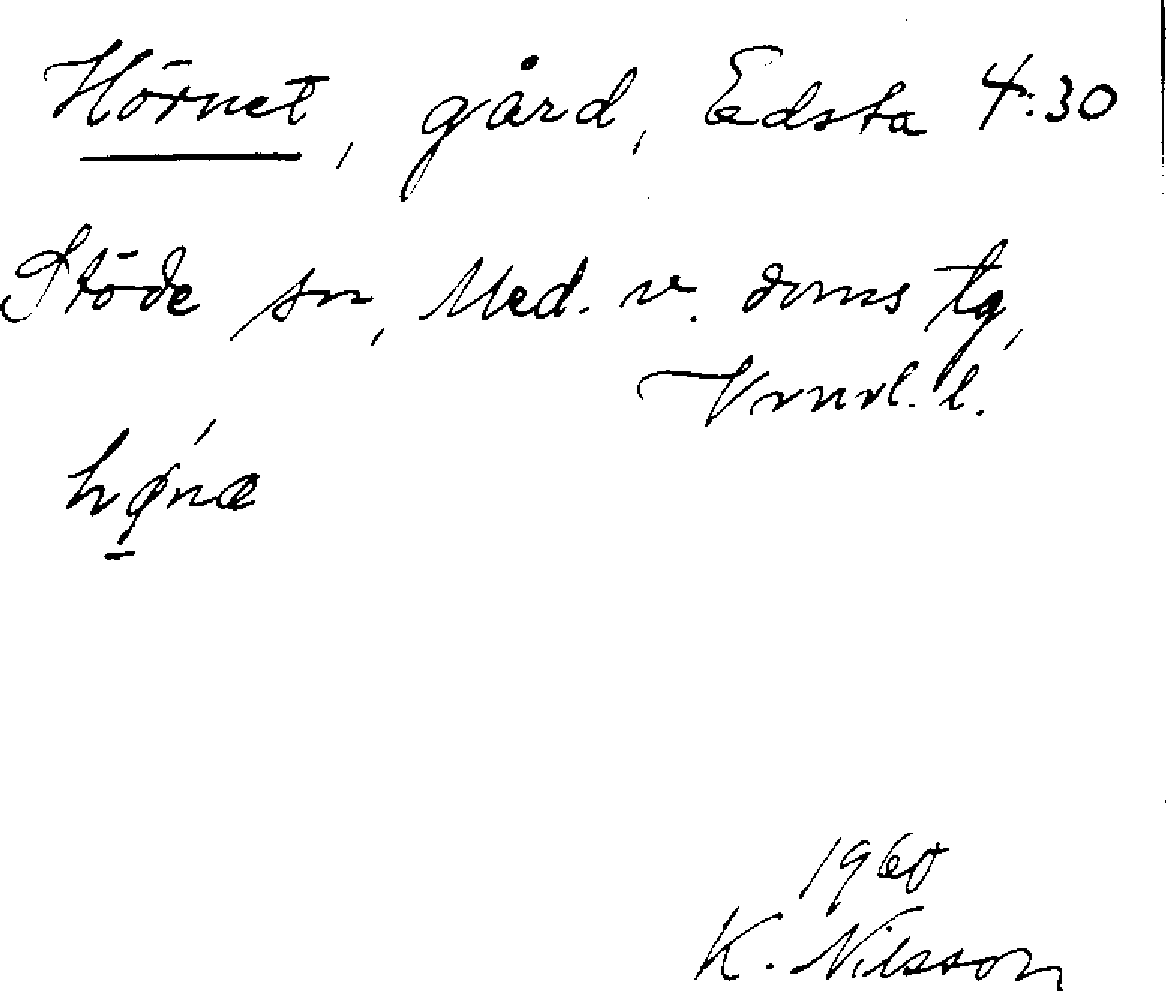 Hörnet, gård, Edsta 4:30
Stöde sn, Med. v. doms tg,
Vrnrl. l.
hǿ̱næ
1960
K. Nilsson